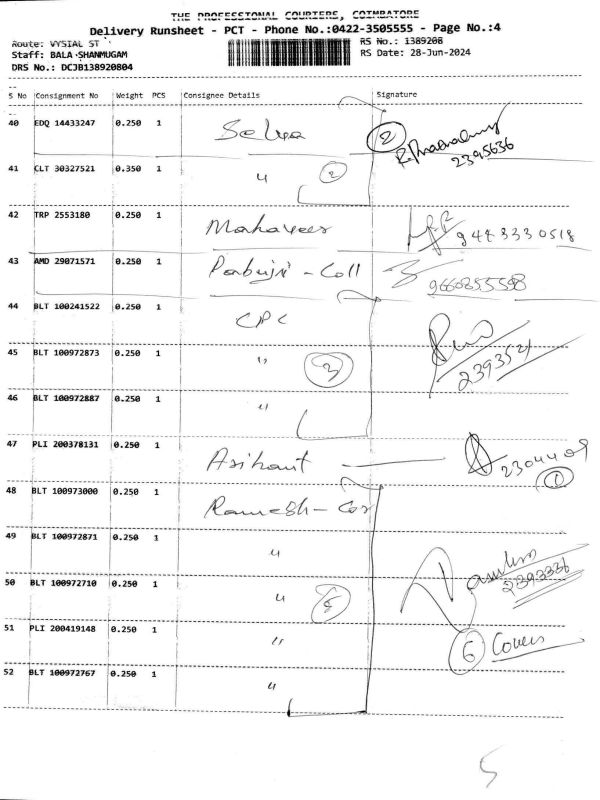 THE PROFESSIONAL COURIERS, COIMBATORE
Delivery Runsheet - PCT - Phone No.:0422-3505555 - Page No.:4
Route: VYSIAL ST
RS No.: 1389208
Staff: BALA SHANMUGAM
RS Date: 28-Jun-2024
DRS No.: DCJB138920804
S No Consignment No Weight PCS Consignee Details Signature
40 EDQ 14433247 0.250 1 Selva 2
2395636
41 CLT 30327521 0.350 1 " 2
42 TRP 2553180 0.250 1 Mahaveer
43 AMD 29071571 0.250 1 Coll 9660855598
44 BLT 100241522 0.250 1 CPC
45 BLT 100972873 0.250 1 " 3 2393521
46 BLT 100972887 0.250 1 "
47 PLI 200378131 0.250 1 Arihant 2304409
1
48 BLT 100973000 0.250 1 Ramesh - Cor
49 BLT 100972871 0.250 1 "
50 BLT 100972710 0.250 1 " 5 2393336
51 PLI 200419148 0.250 1 " 6 Covers
52 BLT 100972767 0.250 1 "
5